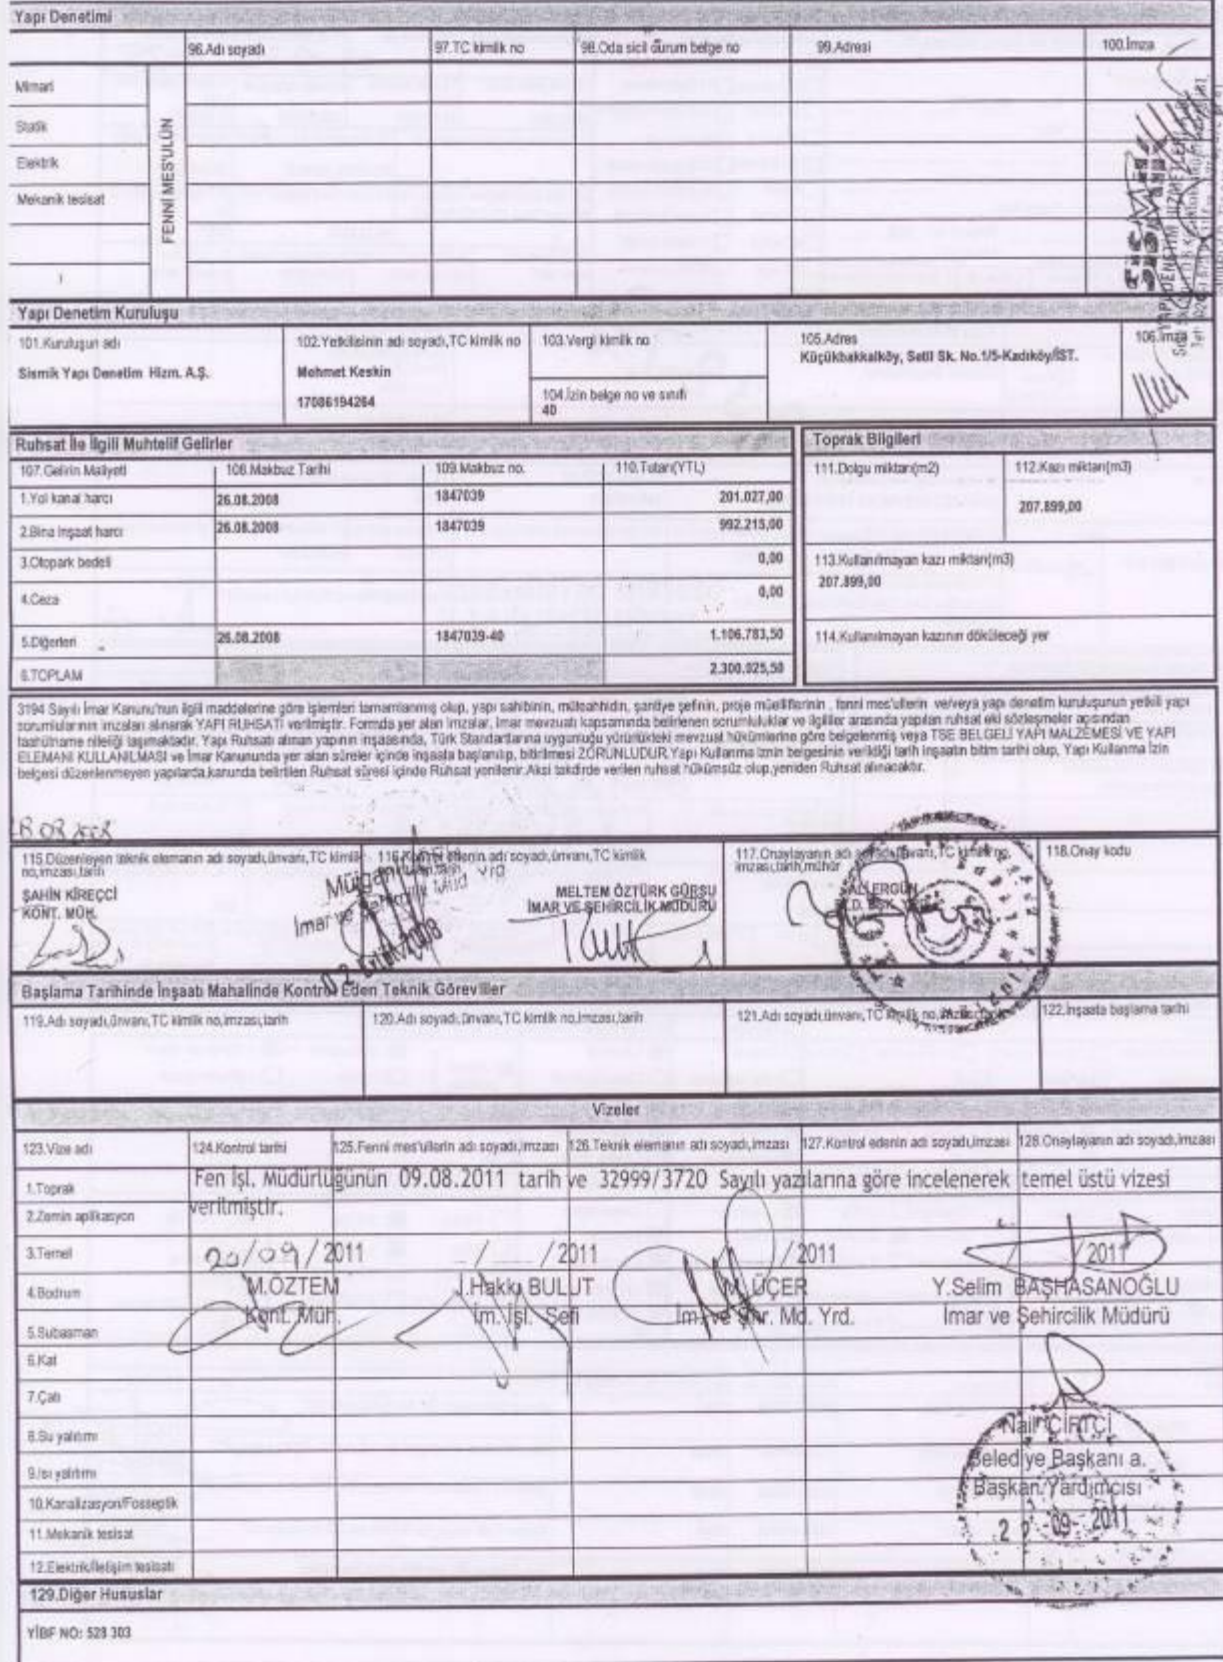 Yapı Denetimi
96.Adı soyadı 97.TC kimlik no 98.Oda sicil durum belge no 99.Adresi 100.İmza
Mimari
Statik
Elektrik
Mekanik tesisat
FENNİ MES'ULÜN
YAPI DENETİM HİZMETLERİ
Yapı Denetim Kuruluşu
101.Kuruluşun adı 102.Yetkilisinin adı soyadı,TC kimlik no 103.Vergi kimlik no 105.Adres 106.İmza
Sismik Yapı Denetim Hizm. A.Ş. Mehmet Keskin Küçükbakkalköy, Setli Sk. No.1/5-Kadıköy/İST.
17086194264 104.İzin belge no ve sınıfı
40
Ruhsat İle İlgili Muhtelif Gelirler
107.Gelirin Maliyeti 108.Makbuz Tarihi 109.Makbuz no. 110.Tutarı(YTL)
1.Yol kanal harcı 26.08.2008 1847039 201.027,00
2.Bina inşaat harcı 26.08.2008 1847039 992.215,00
3.Otopark bedeli 0,00
4.Ceza 0,00
5.Diğerleri 26.08.2008 1847039-40 1.106.783,50
6.TOPLAM 2.300.025,50
Toprak Bilgileri
111.Dolgu miktarı(m2) 112.Kazı miktarı(m3)
207.899,00
113.Kullanılmayan kazı miktarı(m3)
207.899,00
114.Kullanılmayan kazının döküleceği yer
3194 Sayılı İmar Kanunu'nun ilgili maddelerine göre işlemleri tamamlanmış olup, yapı sahibinin, müteahhidin, şantiye şefinin, proje müelliflerinin , fenni mes'ullerin ve/veya yapı denetim kuruluşunun yetkili yapı
sorumlularının imzaları alınarak YAPI RUHSATI verilmiştir. Formda yer alan imzalar, İmar mevzuatı kapsamında belirlenen sorumluluklar ve ilgililer arasında yapılan ruhsat eki sözleşmeler açısından
taahhütname niteliği taşımaktadır. Yapı Ruhsatı alınan yapının inşaasında, Türk Standartlarına uygunluğu yürürlükteki mevzuat hükümlerine göre belgelenmiş veya TSE BELGELİ YAPI MALZEMESİ VE YAPI
ELEMANI KULLANILMASI ve İmar Kanununda yer alan süreler içinde inşaata başlanılıp, bitirilmesi ZORUNLUDUR.Yapı Kullanma İznin belgesinin verildiği tarih inşaatın bitim tarihi olup, Yapı Kullanma İzin
belgesi düzenlenmeyen yapılarda,kanunda belirtilen Ruhsat süresi içinde Ruhsat yenilenir.Aksi takdirde verilen ruhsat hükümsüz olup,yeniden Ruhsat alınacaktır.
115.Düzenleyen teknik elemanın adı soyadı,ünvanı,TC kimlik no,imzası,tarih
ŞAHİN KİREÇCİ
KONT. MÜH.
116.Kontrol edenin adı soyadı,ünvanı,TC kimlik
Müjgan
İmar ve
Müd Yrd
02 2008
MELTEM ÖZTÜRK GÜRSU
İMAR VE ŞEHİRCİLİK MÜDÜRÜ
117.Onaylayanın adı soyadı,ünvanı,TC kimlik no, imzası,tarih,mühür
ALİ ERGÜN
118.Onay kodu
Başlama Tarihinde İnşaatı Mahalinde Kontrol Eden Teknik Görevliler
119.Adı soyadı,ünvanı,TC kimlik no,imzası,tarih 120.Adı soyadı,ünvanı,TC kimlik no,imzası,tarih 121.Adı soyadı,ünvanı,TC kimlik no,imzası,tarih 122.İnşaata başlama tarihi
Vizeler
123.Vize adı 124.Kontrol tarihi 125.Fenni mes'ullerin adı soyadı,imzası 126.Teknik elemanın adı soyadı,imzası 127.Kontrol edenin adı soyadı,imzası 128.Onaylayanın adı soyadı,imzası
Fen İşl. Müdürlüğünün 09.08.2011 tarih ve 32999/3720 Sayılı yazılarına göre incelenerek temel üstü vizesi
verilmiştir.
1.Toprak
2.Zemin aplikasyon
3.Temel 20/09/2011 / /2011 /2011 /2011
4.Bodrum M.ÖZTEM İ.Hakkı BULUT M. ÜÇER Y.Selim BAŞHASANOĞLU
Kont. Müh. İm. İşl. Şefi İm. ve Şhr. Md. Yrd. İmar ve Şehircilik Müdürü
5.Subasman
6.Kat
7.Çatı
8.Su yalıtımı
9.Isı yalıtımı
10.Kanalizasyon/Fosseptik
11.Mekanik tesisat
12.Elektrik/İletişim tesisatı
Nail ÇİFTÇİ
Belediye Başkanı a.
Başkan Yardımcısı
-09- 2011
129.Diğer Hususlar
YİBF NO: 528 303